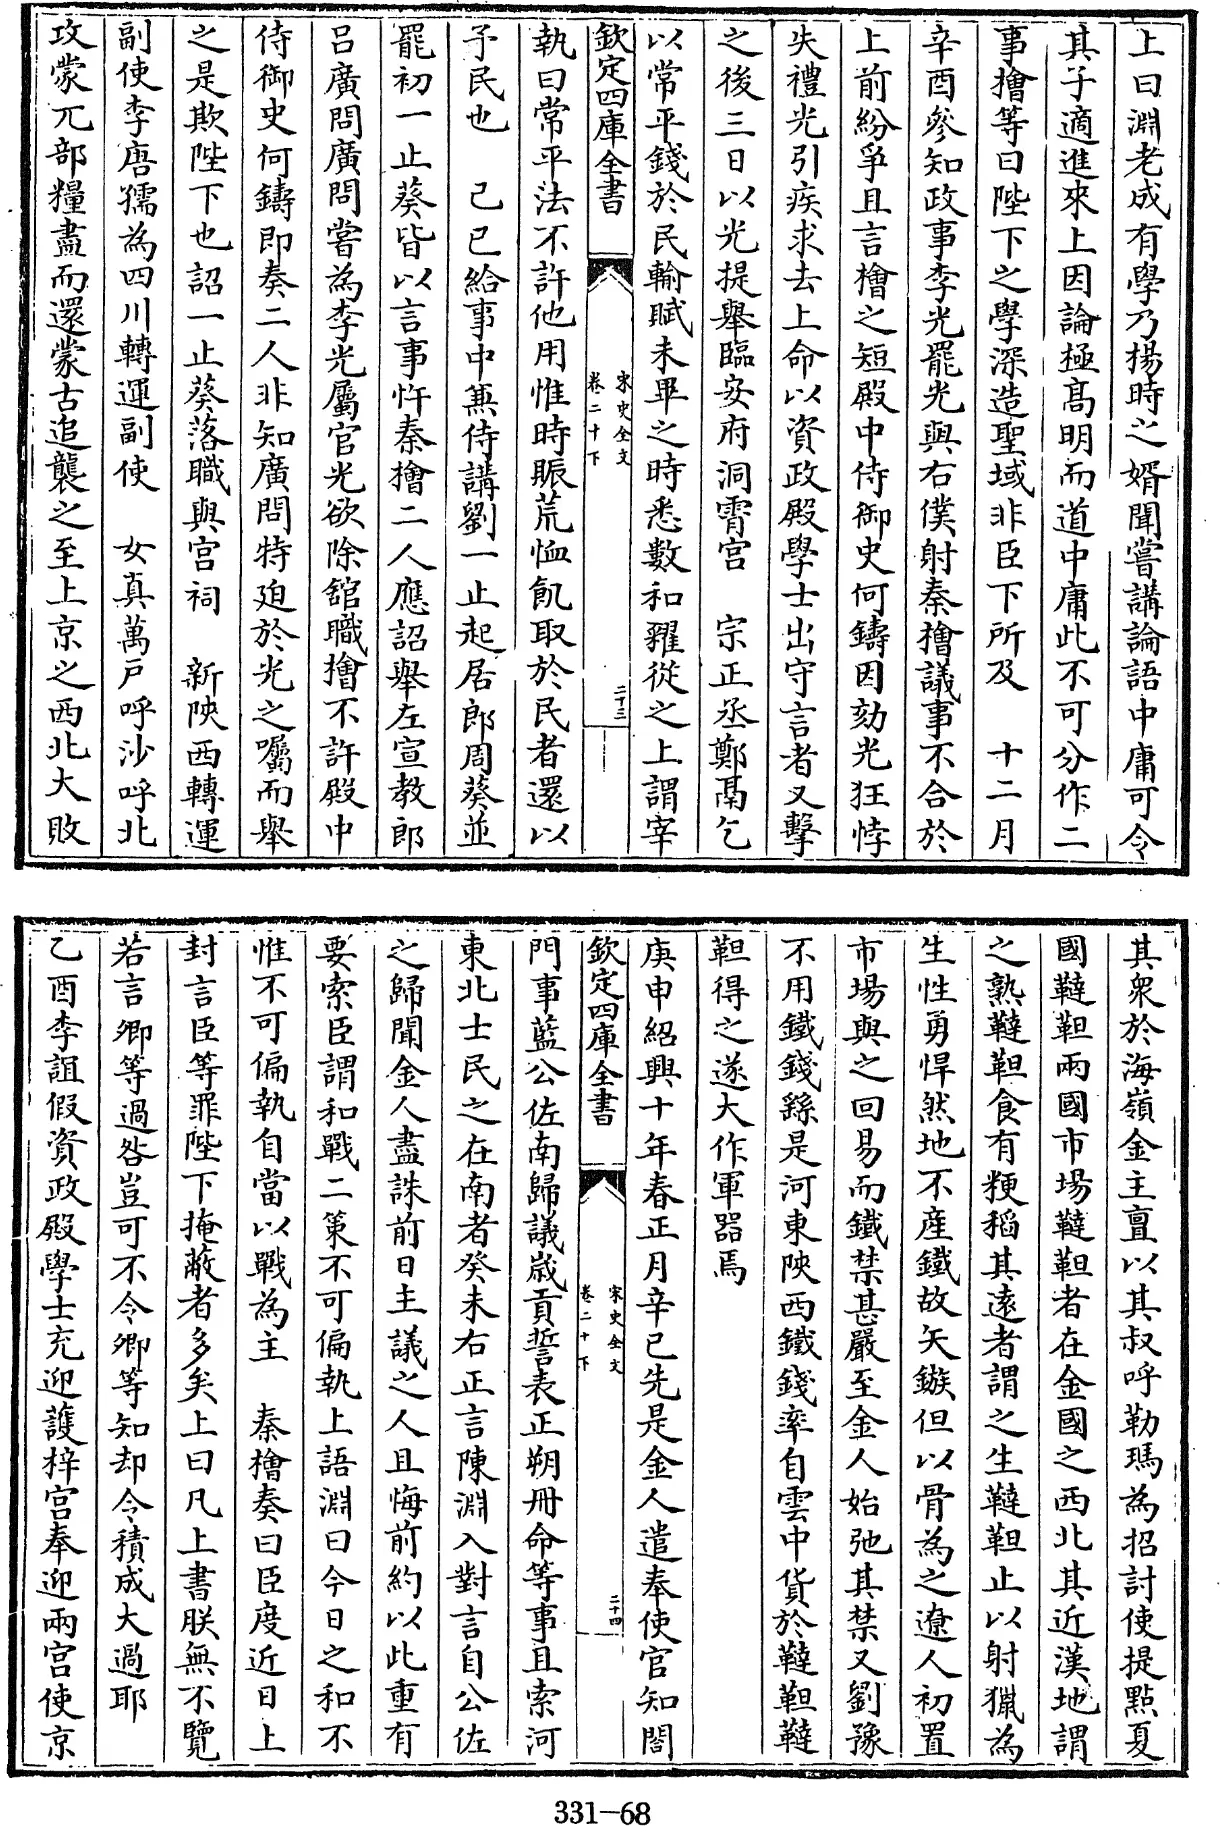 上曰淵老成有學乃揚時之婿聞嘗講論語中庸可令
其子適進來上因論極髙明而道中庸此不可分作二
事檜等曰陛下之學深造聖域非臣下所及　十二月
辛酉參知政事李光罷光與右僕射秦檜議事不合於
上前紛爭且言檜之短殿中侍御史何鑄因劾光狂悖
失禮光引疾求去上命以資政殿學士出守言者又擊
之後三日以光提舉臨安府洞霄宫　宗正丞鄭鬲乞
以常平錢於民輸賦未畢之時悉數和糴從之上謂宰
欽定四庫全書
宋史全文
卷二十下
二十三
執曰常平法不許他用惟時賑荒恤飢取於民者還以
予民也　己巳給事中兼侍講劉一止起居郎周葵並
罷初一止葵皆以言事忤秦檜二人應詔舉左宣教郎
吕廣問廣問嘗為李光屬官光欲除舘職檜不許殿中
侍御史何鑄即奏二人非知廣問特廹於光之囑而舉
之是欺陛下也詔一止葵落職與宫祠　新陝西轉運
副使李唐孺為四川轉運副使　女真萬户呼沙呼北
攻蒙兀部糧盡而還蒙古追襲之至上京之西北大敗
其衆於海嶺金主亶以其叔呼勒瑪為招討使提點夏
國韃靼兩國市場韃靼者在金國之西北其近漢地謂
之熟韃靼食有粳稻其遠者謂之生韃靼止以射獵為
生性勇悍然地不産鐵故矢鏃但以骨為之遼人初置
市場與之回易而鐵禁甚嚴至金人始弛其禁又劉豫
不用鐵錢繇是河東陝西鐵錢率自雲中貨於韃靼韃
靼得之遂大作軍器焉
庚申紹興十年春正月辛巳先是金人遣奉使官知閤
欽定四庫全書
宋史全文
卷二十下
二十四
門事藍公佐南歸議歳貢誓表正朔冊命等事且索河
東北士民之在南者癸未右正言陳淵入對言自公佐
之歸聞金人盡誅前日主議之人且悔前約以此重有
要索臣謂和戰二策不可偏執上語淵曰今日之和不
惟不可偏執自當以戰為主　秦檜奏曰臣度近日上
封言臣等罪陛下掩蔽者多矣上曰凡上書朕無不覽
若言卿等過咎豈可不令卿等知却令積成大過耶
乙酉李誼假資政殿學士充迎護梓宫奉迎兩宫使京
331-68